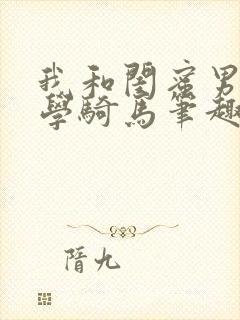 我和閨蜜男
學騎馬筆趣
隋九